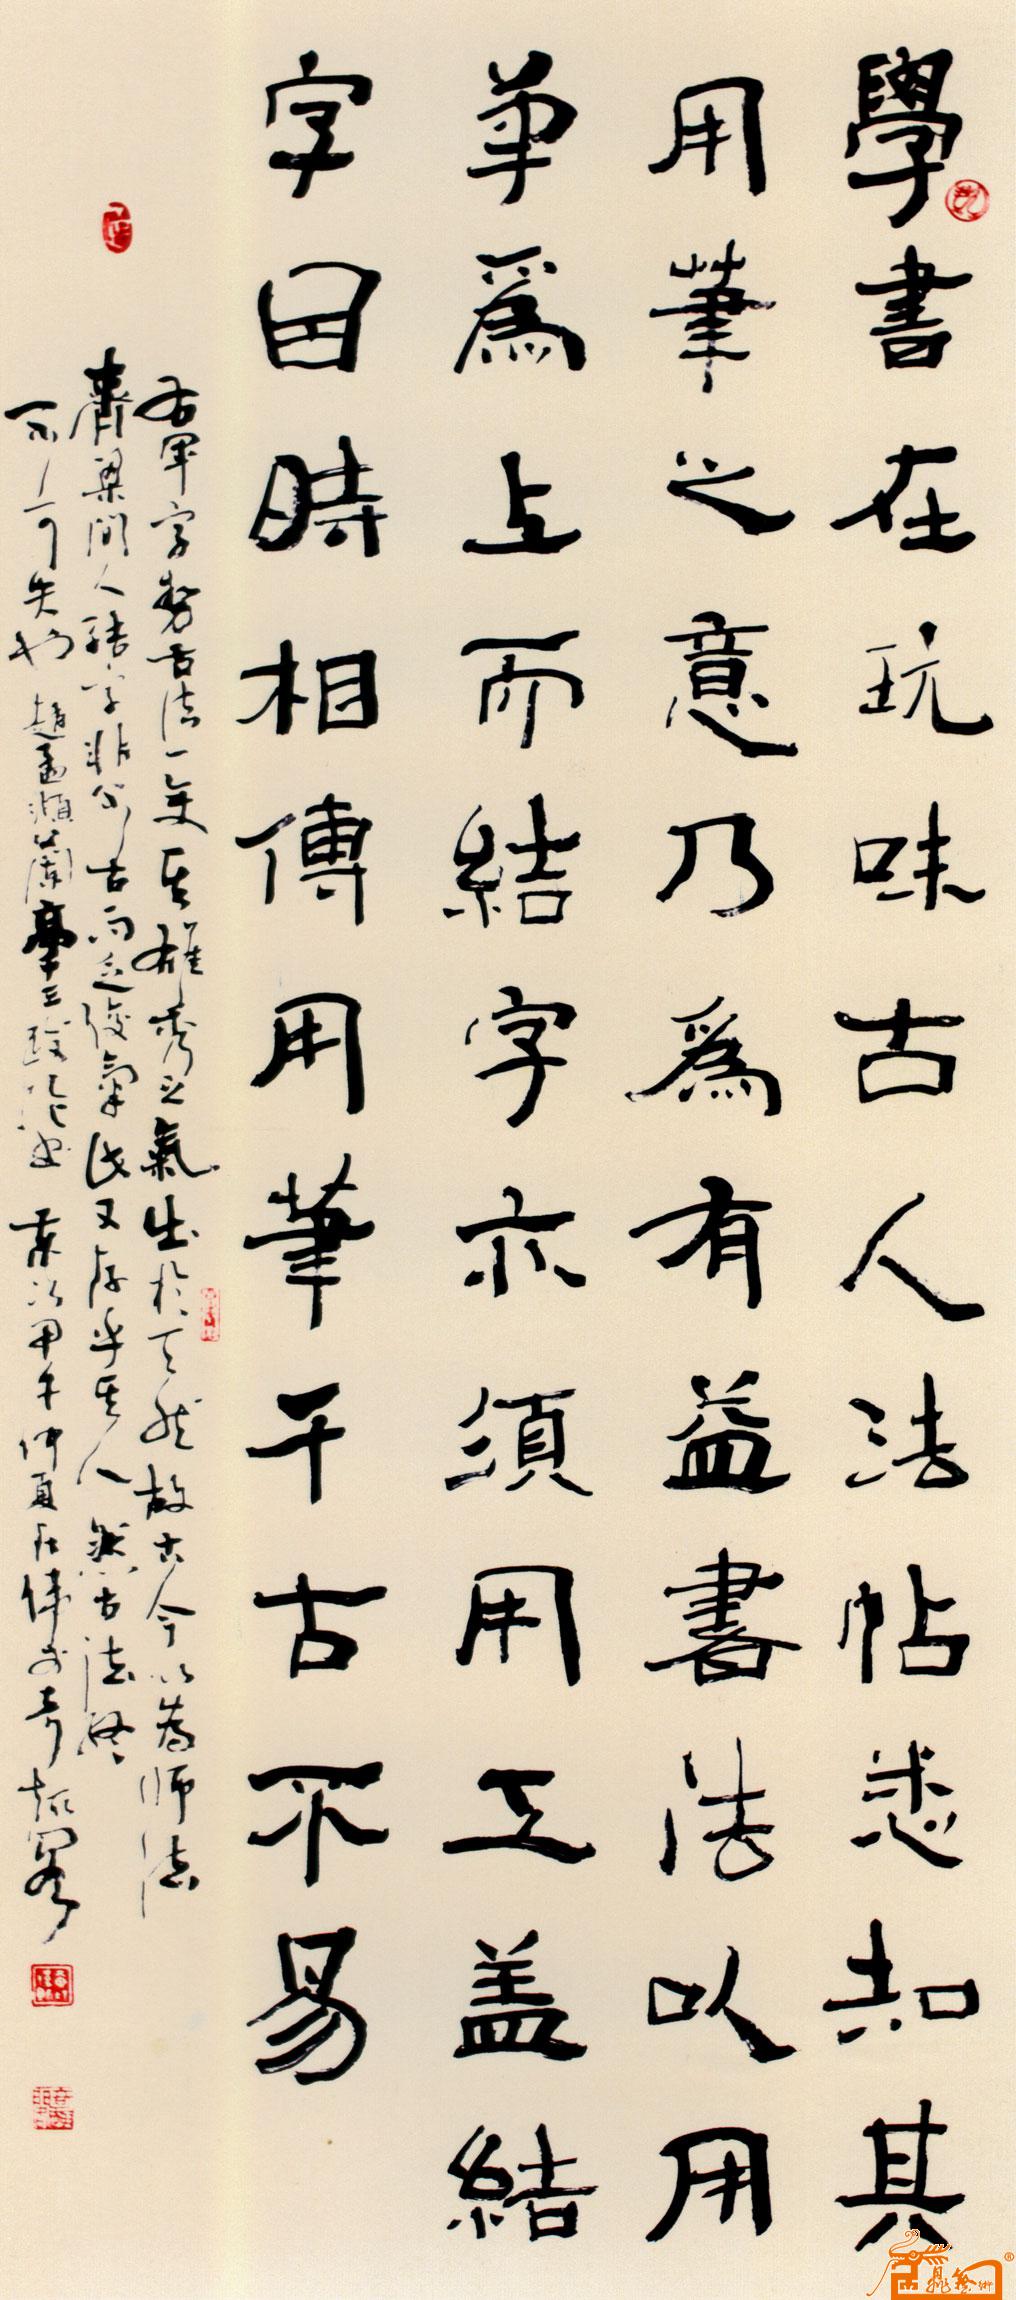 學書在玩味古人法帖悉知其
用筆之意乃為有益書法以用
筆為上而結字亦須用工蓋結
字因時相傳用筆千古不易
右軍字勢古法一變其雄秀之氣出於天然故古今以為師法
齊梁間人結字非不古而乏俊氣此又存乎其人然古法終
不可失也趙孟頫蘭亭十三跋 甲午仲夏